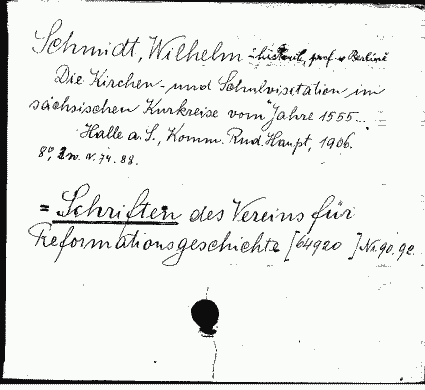 Schmidt, Wilhelm - historik, prof. v Berlíně
Die Kirchen- und Schulvisitation im
sächsischen Kurkreise vom Jahre 1555...
Halle a. S., Komm. Rud. Haupt, 1906.
8°, 2 v. N. 74. 88.
= Schriften des Vereins für
Reformationsgeschichte [64920 ] Nr. 90. 92.